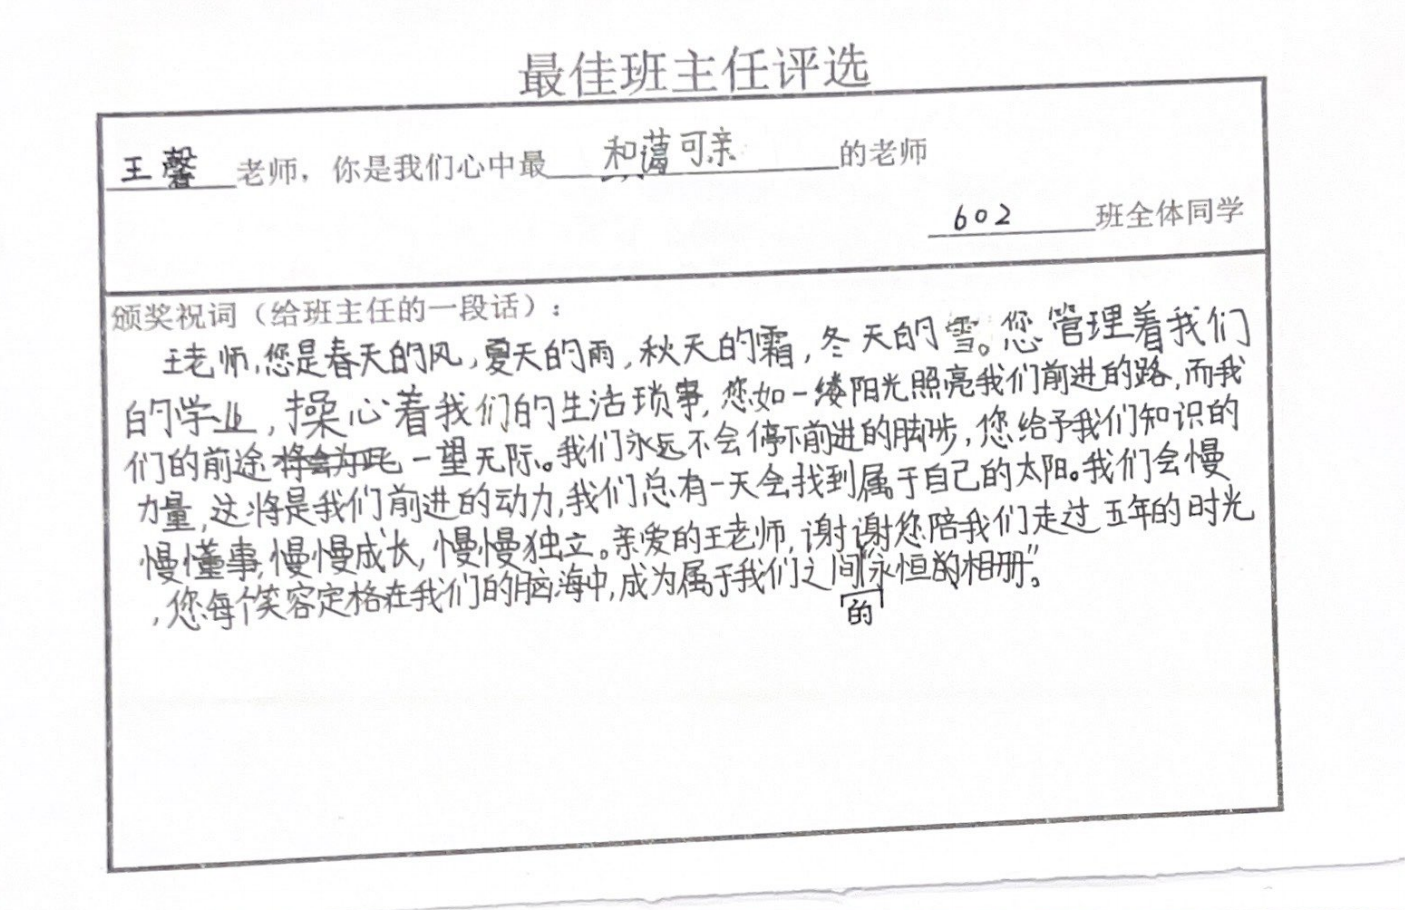 最佳班主任评选
王馨老师，你是我们心中最和蔼可亲的老师
602班全体同学
颁奖祝词（给班主任的一段话）：
王老师,您是春天的风,夏天的雨,秋天的霜,冬天的雪。您管理着我们
的学业,操心着我们的生活琐事,您如一缕阳光照亮我们前进的路,而我
们的前途一望无际。我们永远不会停下前进的脚步,您给予我们知识的
力量,这将是我们前进的动力,我们总有一天会找到属于自己的太阳。我们会慢
慢懂事,慢慢成长,慢慢独立。亲爱的王老师,谢谢您陪我们走过五年的时光
,您每个笑容定格在我们的脑海中,成为属于我们之间的“永恒的相册”。